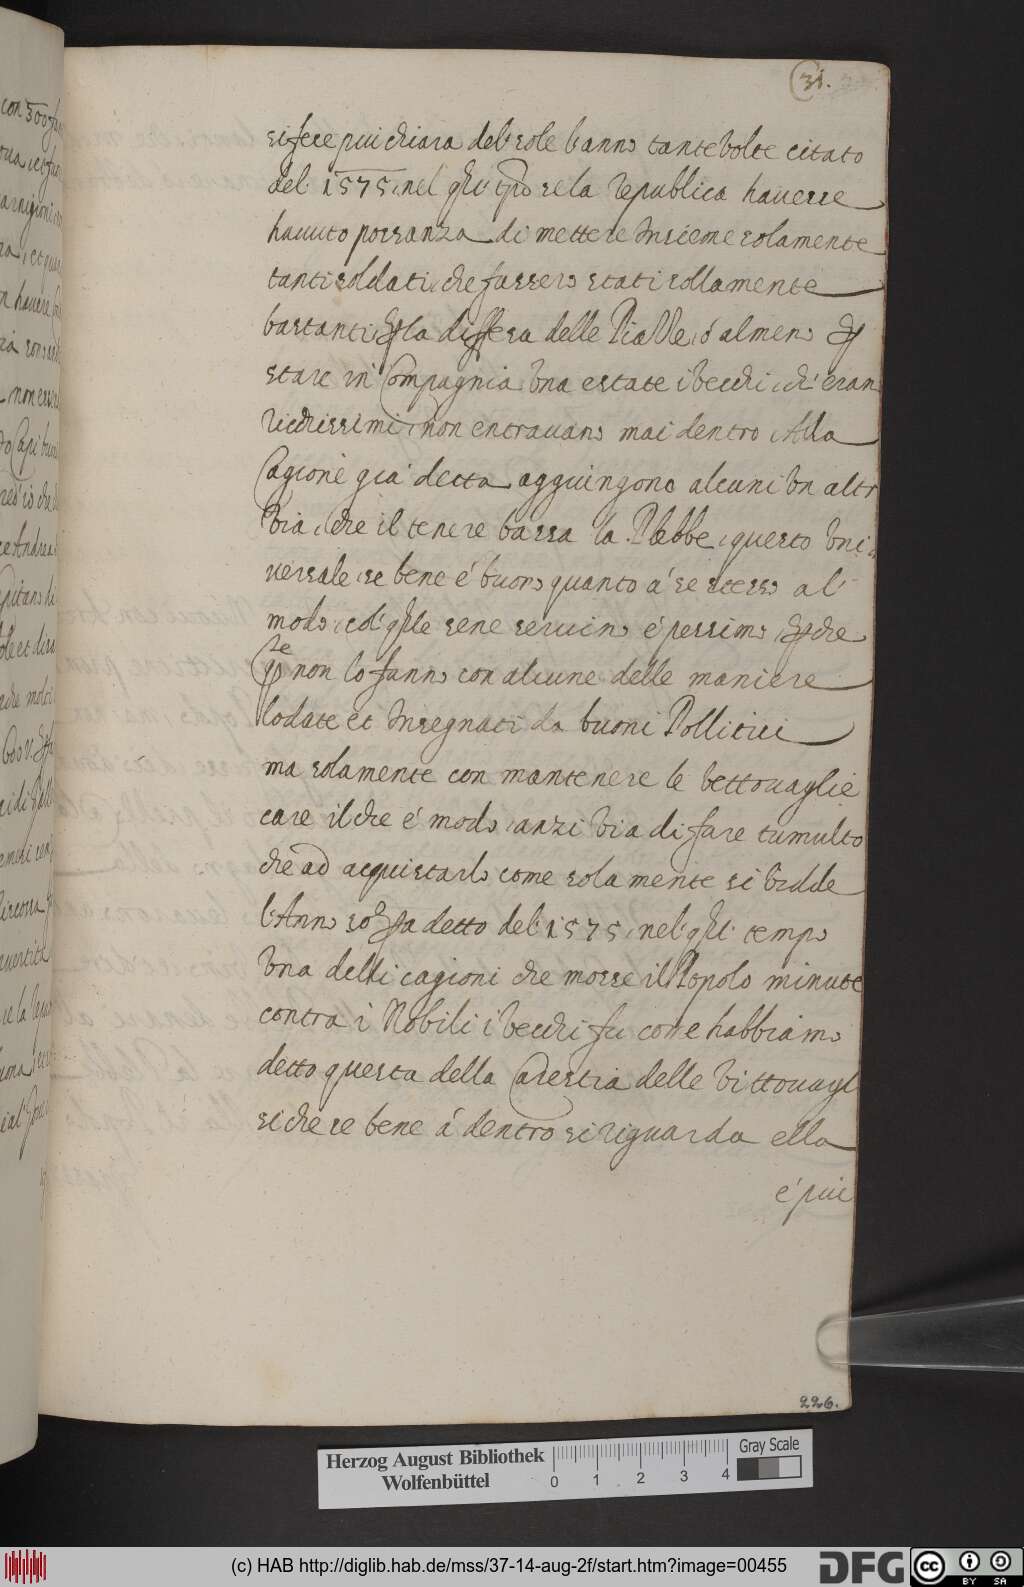 31.
si fece piu chiara del sole l'anno tante volte citato
del 1575, nel qual tpo se la republica hauesse
hauuto possanza di mettere Insieme solamente
tanti soldati, che fussero stati sollamente
bastanti p la diffesa delle Piazze, ó almeno p
stare in Compagnia Una estate i vecchi, ch' eran
ricchissimi, non entrauano mai dentro, Alla
Cagione già detta aggiungono alcuni Un altr
Via, che il tenere bassa la Plebbe, questo Uni
uersale, se bene é buono quanto á se stesso al
modo, col qle sene seruino é pessimo, p che
qste non lo fanno con alcune delle maniere
lodate et Insegnati da buoni Pollitici
ma solamente con mantenere le vettouaglie
care il che é modo, anzi Via di fare tumulto
che ad acquistarlo come sola mente si vidde
l'Anno so pa detto del 1575, nel qual tempo
Una delli cagioni che mosse il Popolo minute
contra i Nobili i vecchi fu come habbiamo
detto questa della Carestia delle Vittouagl
si che se bene á dentro si riguarda ella
é piu
226.
con 300
et qua
n hauere
non
Capi
ce Andrea
Capitano di
et dira
molti
di
la
Herzog August Bibliothek
Wolfenbüttel
0 1 2 3 4
Gray Scale
(c) HAB http://diglib.hab.de/mss/37-14-aug-2f/start.htm?image=00455
DFG
cc BY SA